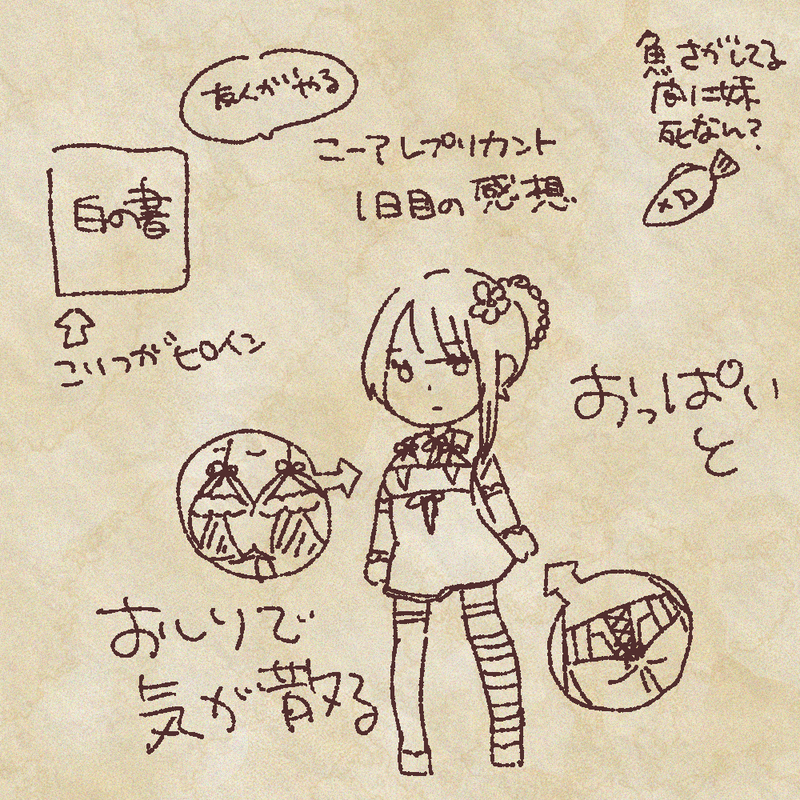 友人がやる
ニーアレプリカント
1日目の感想
魚さがしてる
間に妹
死なん?
白の書
こいつがヒロイン
おっぱい
と
おしりで
気が散る